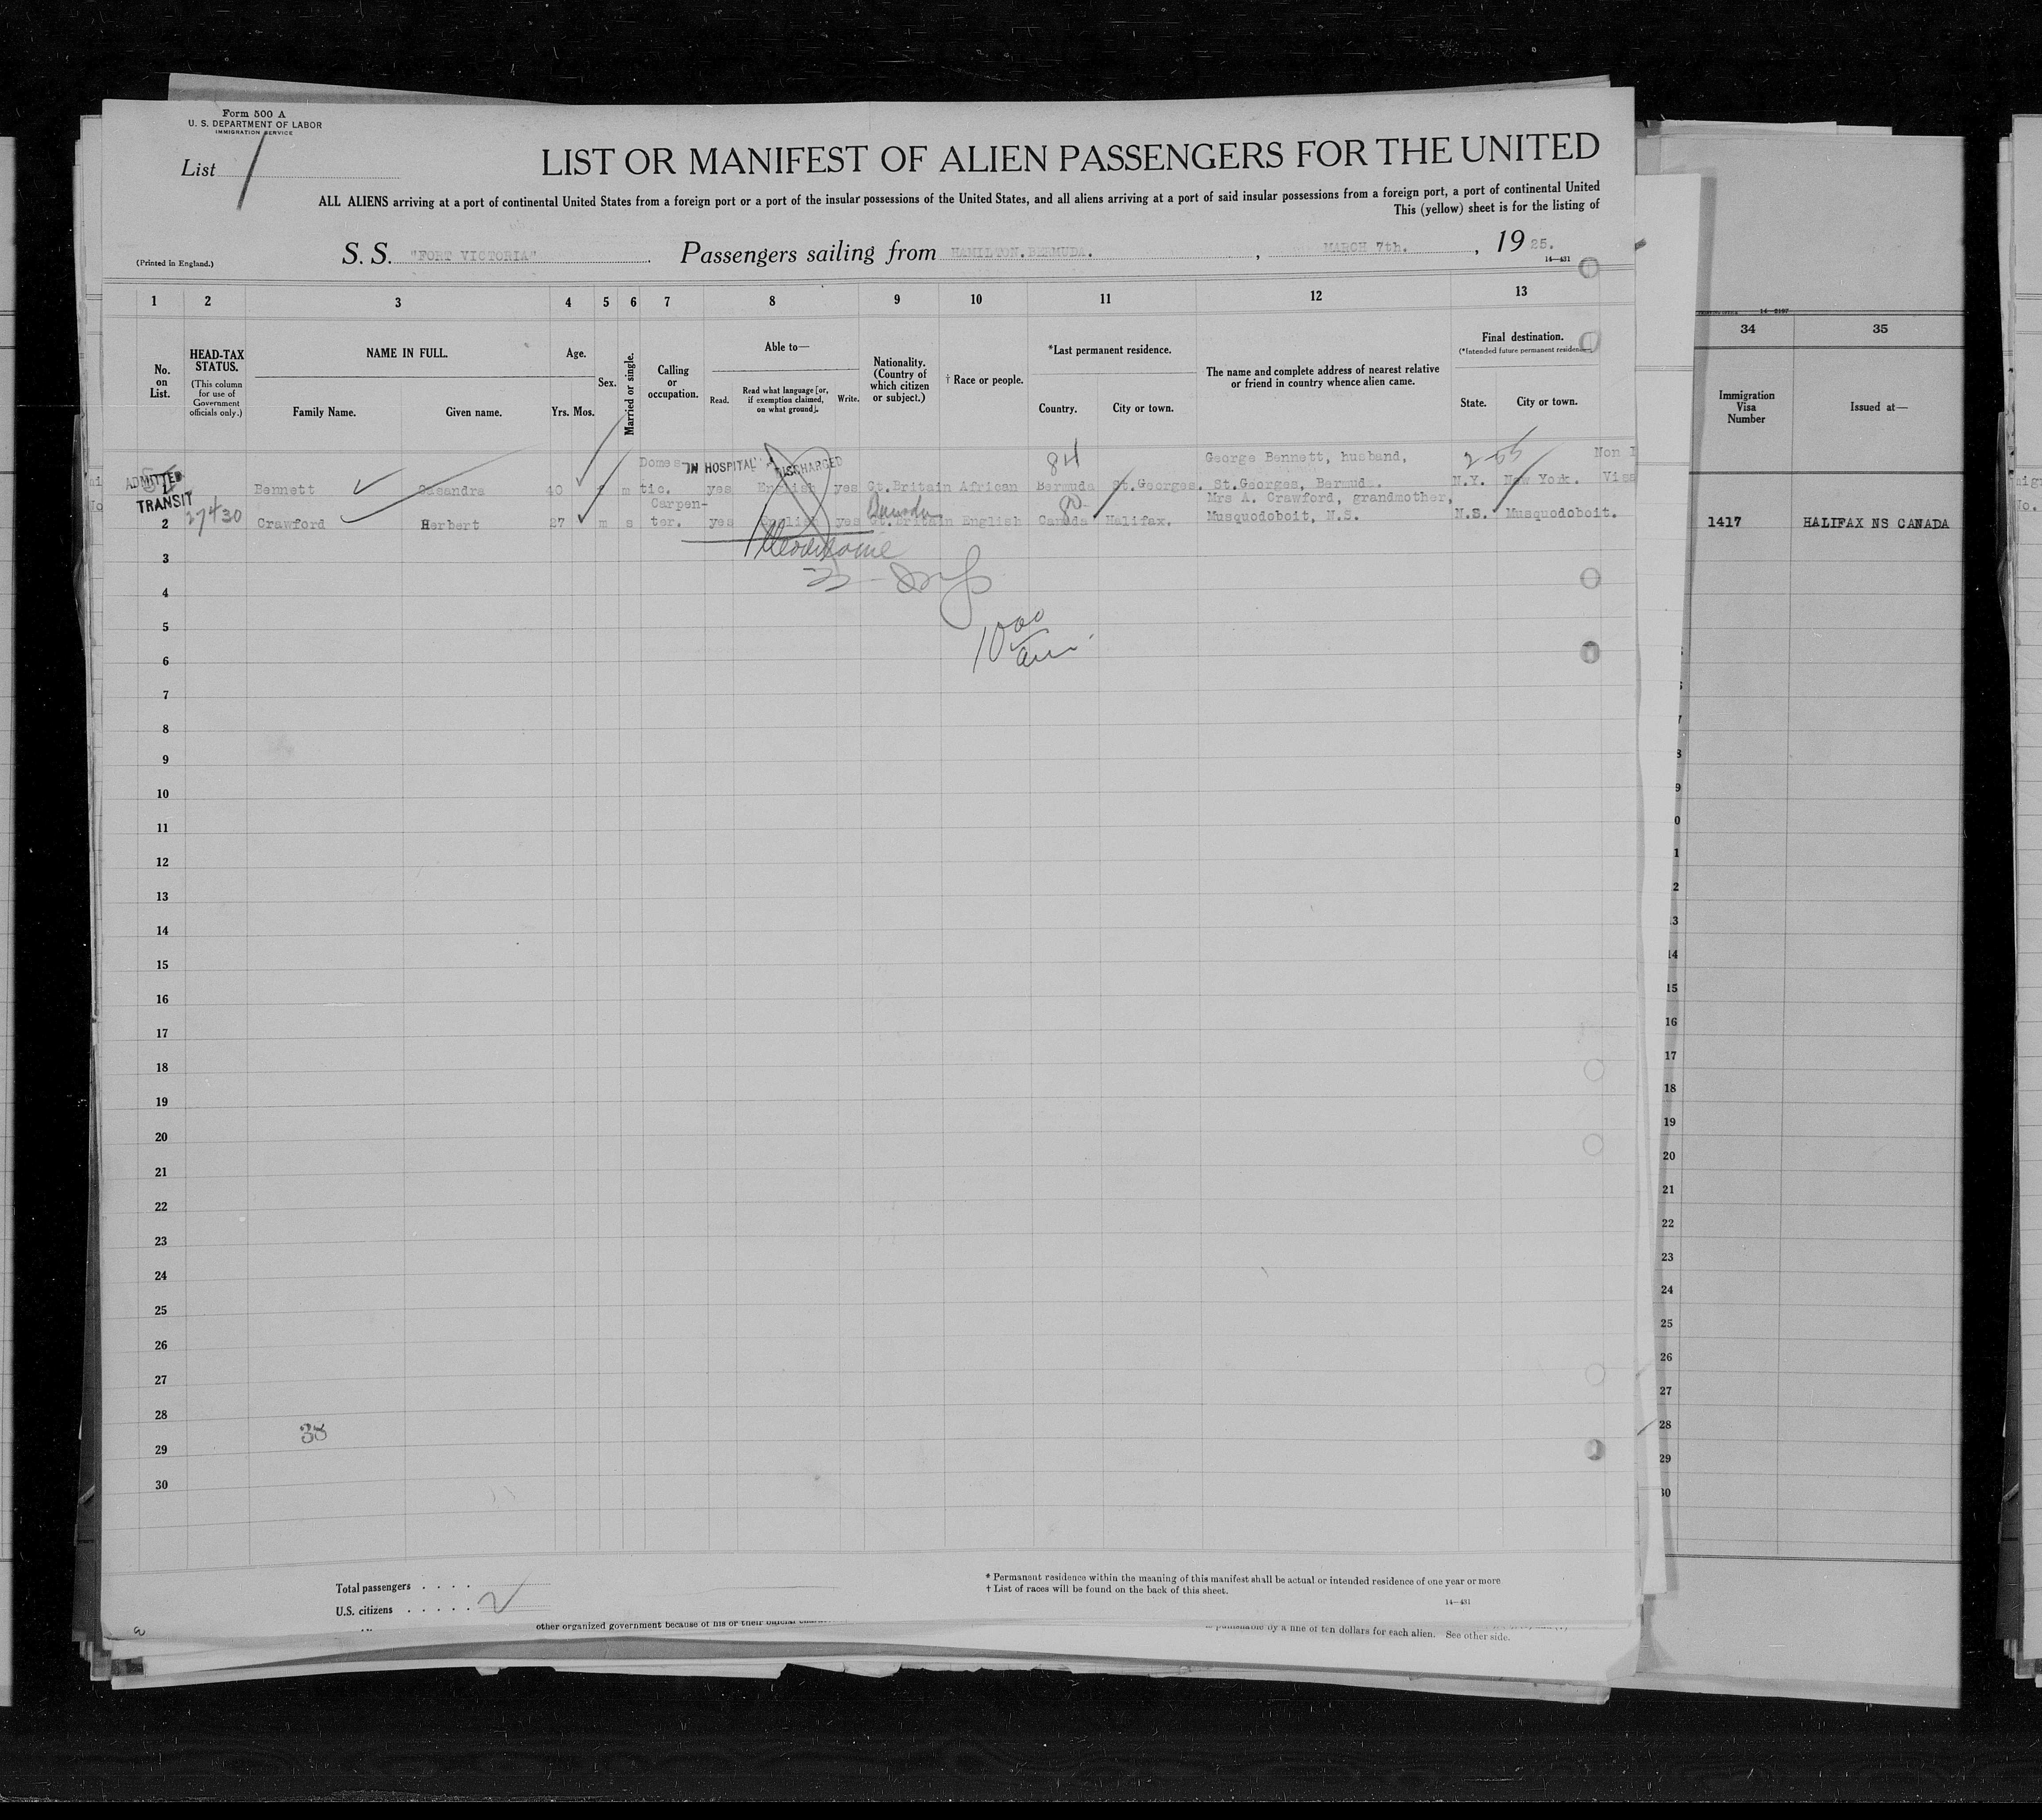 Form 500 A
U. S. DEPARTMENT OF LABOR
IMMIGRATION SERVICE
List 1
LIST OR MANIFEST OF ALIEN PASSENGERS FOR THE UNITED
ALL ALIENS arriving at a port of continental United States from a foreign port or a port of the insular possessions of the United States, and all aliens arriving at a port of said insular possessions from a foreign port, a port of continental United
This (yellow) sheet is for the listing of
(Printed in England.)
S. S. "FORT VICTORIA" Passengers sailing from HAMILTON.BERMUDA. , MARCH 7th. , 19 25.
14—431
1 2 3 4 5 6 7 8 9 10 11 12 13
No. on List.
HEAD-TAX STATUS.
(This column for use of Government officials only.)
NAME IN FULL.
Family Name. Given name.
Age.
Yrs. Mos.
Sex.
Married or single.
Calling or occupation.
Able to—
Read. Read what language [or, if exemption claimed, on what ground]. Write.
Nationality. (Country of which citizen or subject.)
† Race or people.
*Last permanent residence.
Country. City or town.
The name and complete address of nearest relative or friend in country whence alien came.
Final destination.
(*Intended future permanent residence.)
State. City or town.
34 35
Immigration Visa Number
Issued at—
ADMITTED
TRANSIT
IN HOSPITAL
DISCHARGED
84
2-55
Domes George Bennett, husband, Non
1 Bennett Casandra 40 f m tic. yes English yes Gt.Britain African Bermuda St.Georges. St.Georges, Bermuda. N.Y. New York. Visa
Carpen- Mrs A. Crawford, grandmother,
2 27430 Crawford Herbert 27 m s ter. yes English yes Gt.Britain English Canada Halifax. Musquodoboit, N.S. N.S. Musquodoboit.
1417 HALIFAX NS CANADA
3
4
5
10 00
6
7
8
9
10
11
12
13
14
15
16
17
18
19
20
21
22
23
24
25
26
27
28
38
29
30
Total passengers . . . .
U.S. citizens . . . . .
2
* Permanent residence within the meaning of this manifest shall be actual or intended residence of one year or more
† List of races will be found on the back of this sheet.
14—431
other organized government because of his or their official
punishable by a fine of ten dollars for each alien. See other side.